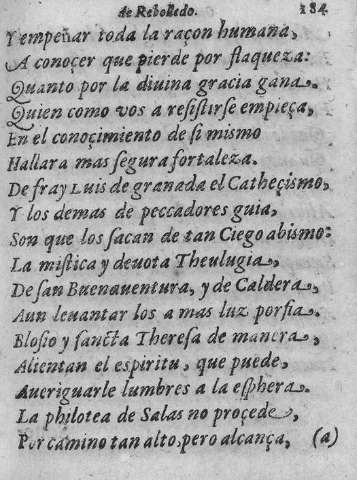 de Rebolledo. 184
Y empeñar toda la raçon humana,
A conoçer que pierde por flaqueza:
Quanto por la diuina gracia gana.
Quien como vos a resistirse empieça,
En el conoçimiento de si mismo
Hallara mas segura fortaleza.
De fray Luis de granada el Catheçismo,
Y los demas de peccadores guia,
Son que los sacan de tan Ciego abismo:
La mistica y deuota Theulugia,
De san Buenauentura, y de Caldera,
Aun leuantar los a mas luz porfia.
Blosio y sancta Theresa de manera,
Alientan el espiritu, que puede,
Aueriguarle lumbres a la esphera.
La philotea de Salas no proçede,
Por camino tan alto, pero alcança, (a)